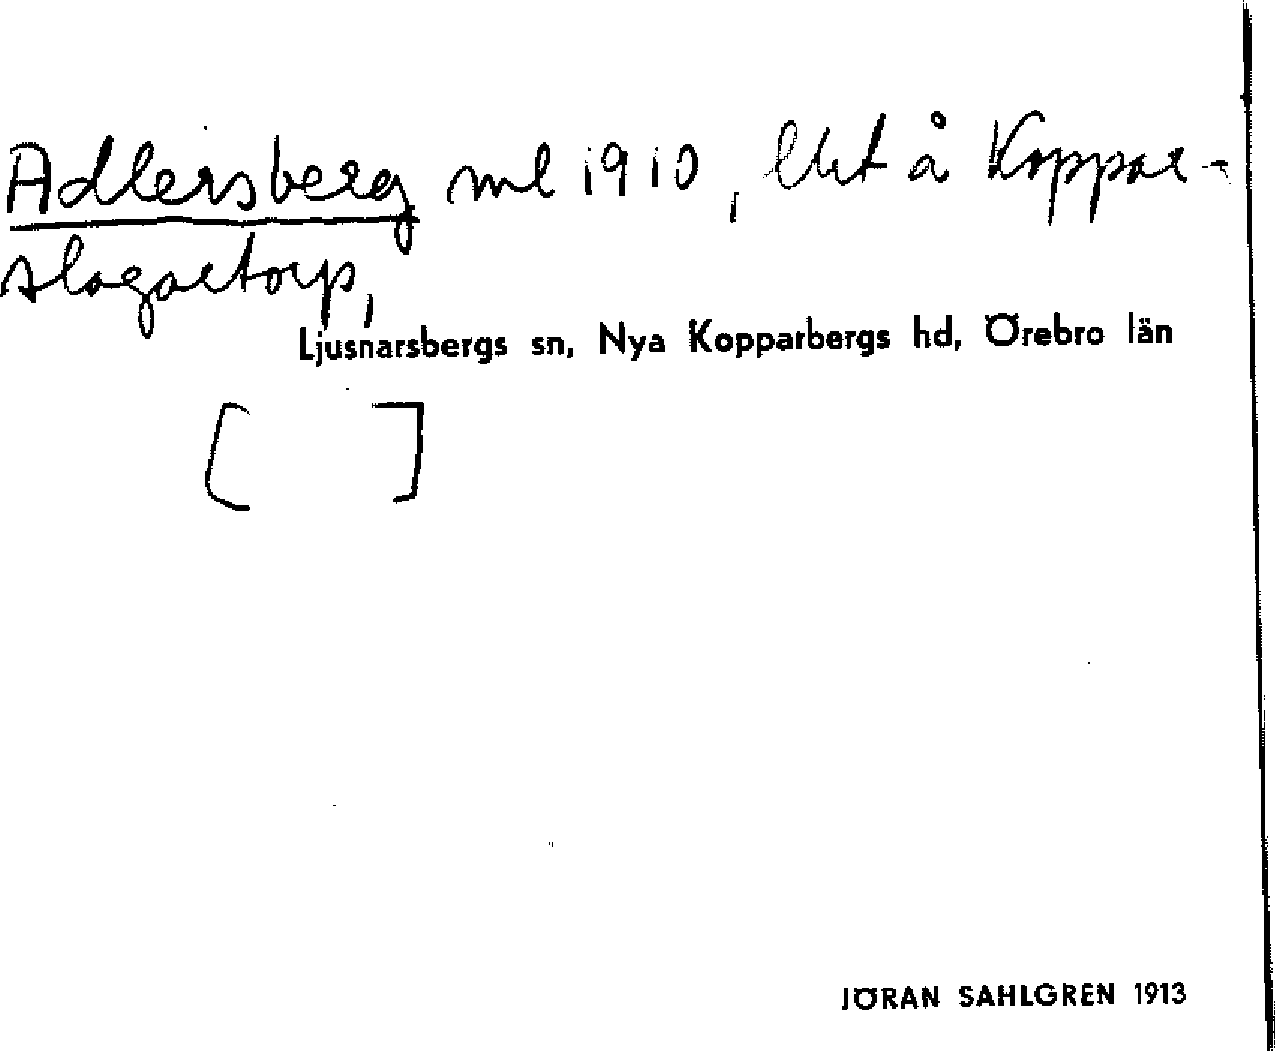 Adlersberg ml 1910, lht å Koppar-
slagartorp,
Ljusnarsbergs sn, Nya Kopparbergs hd, Örebro län
[ ]
JÖRAN SAHLGREN 1913